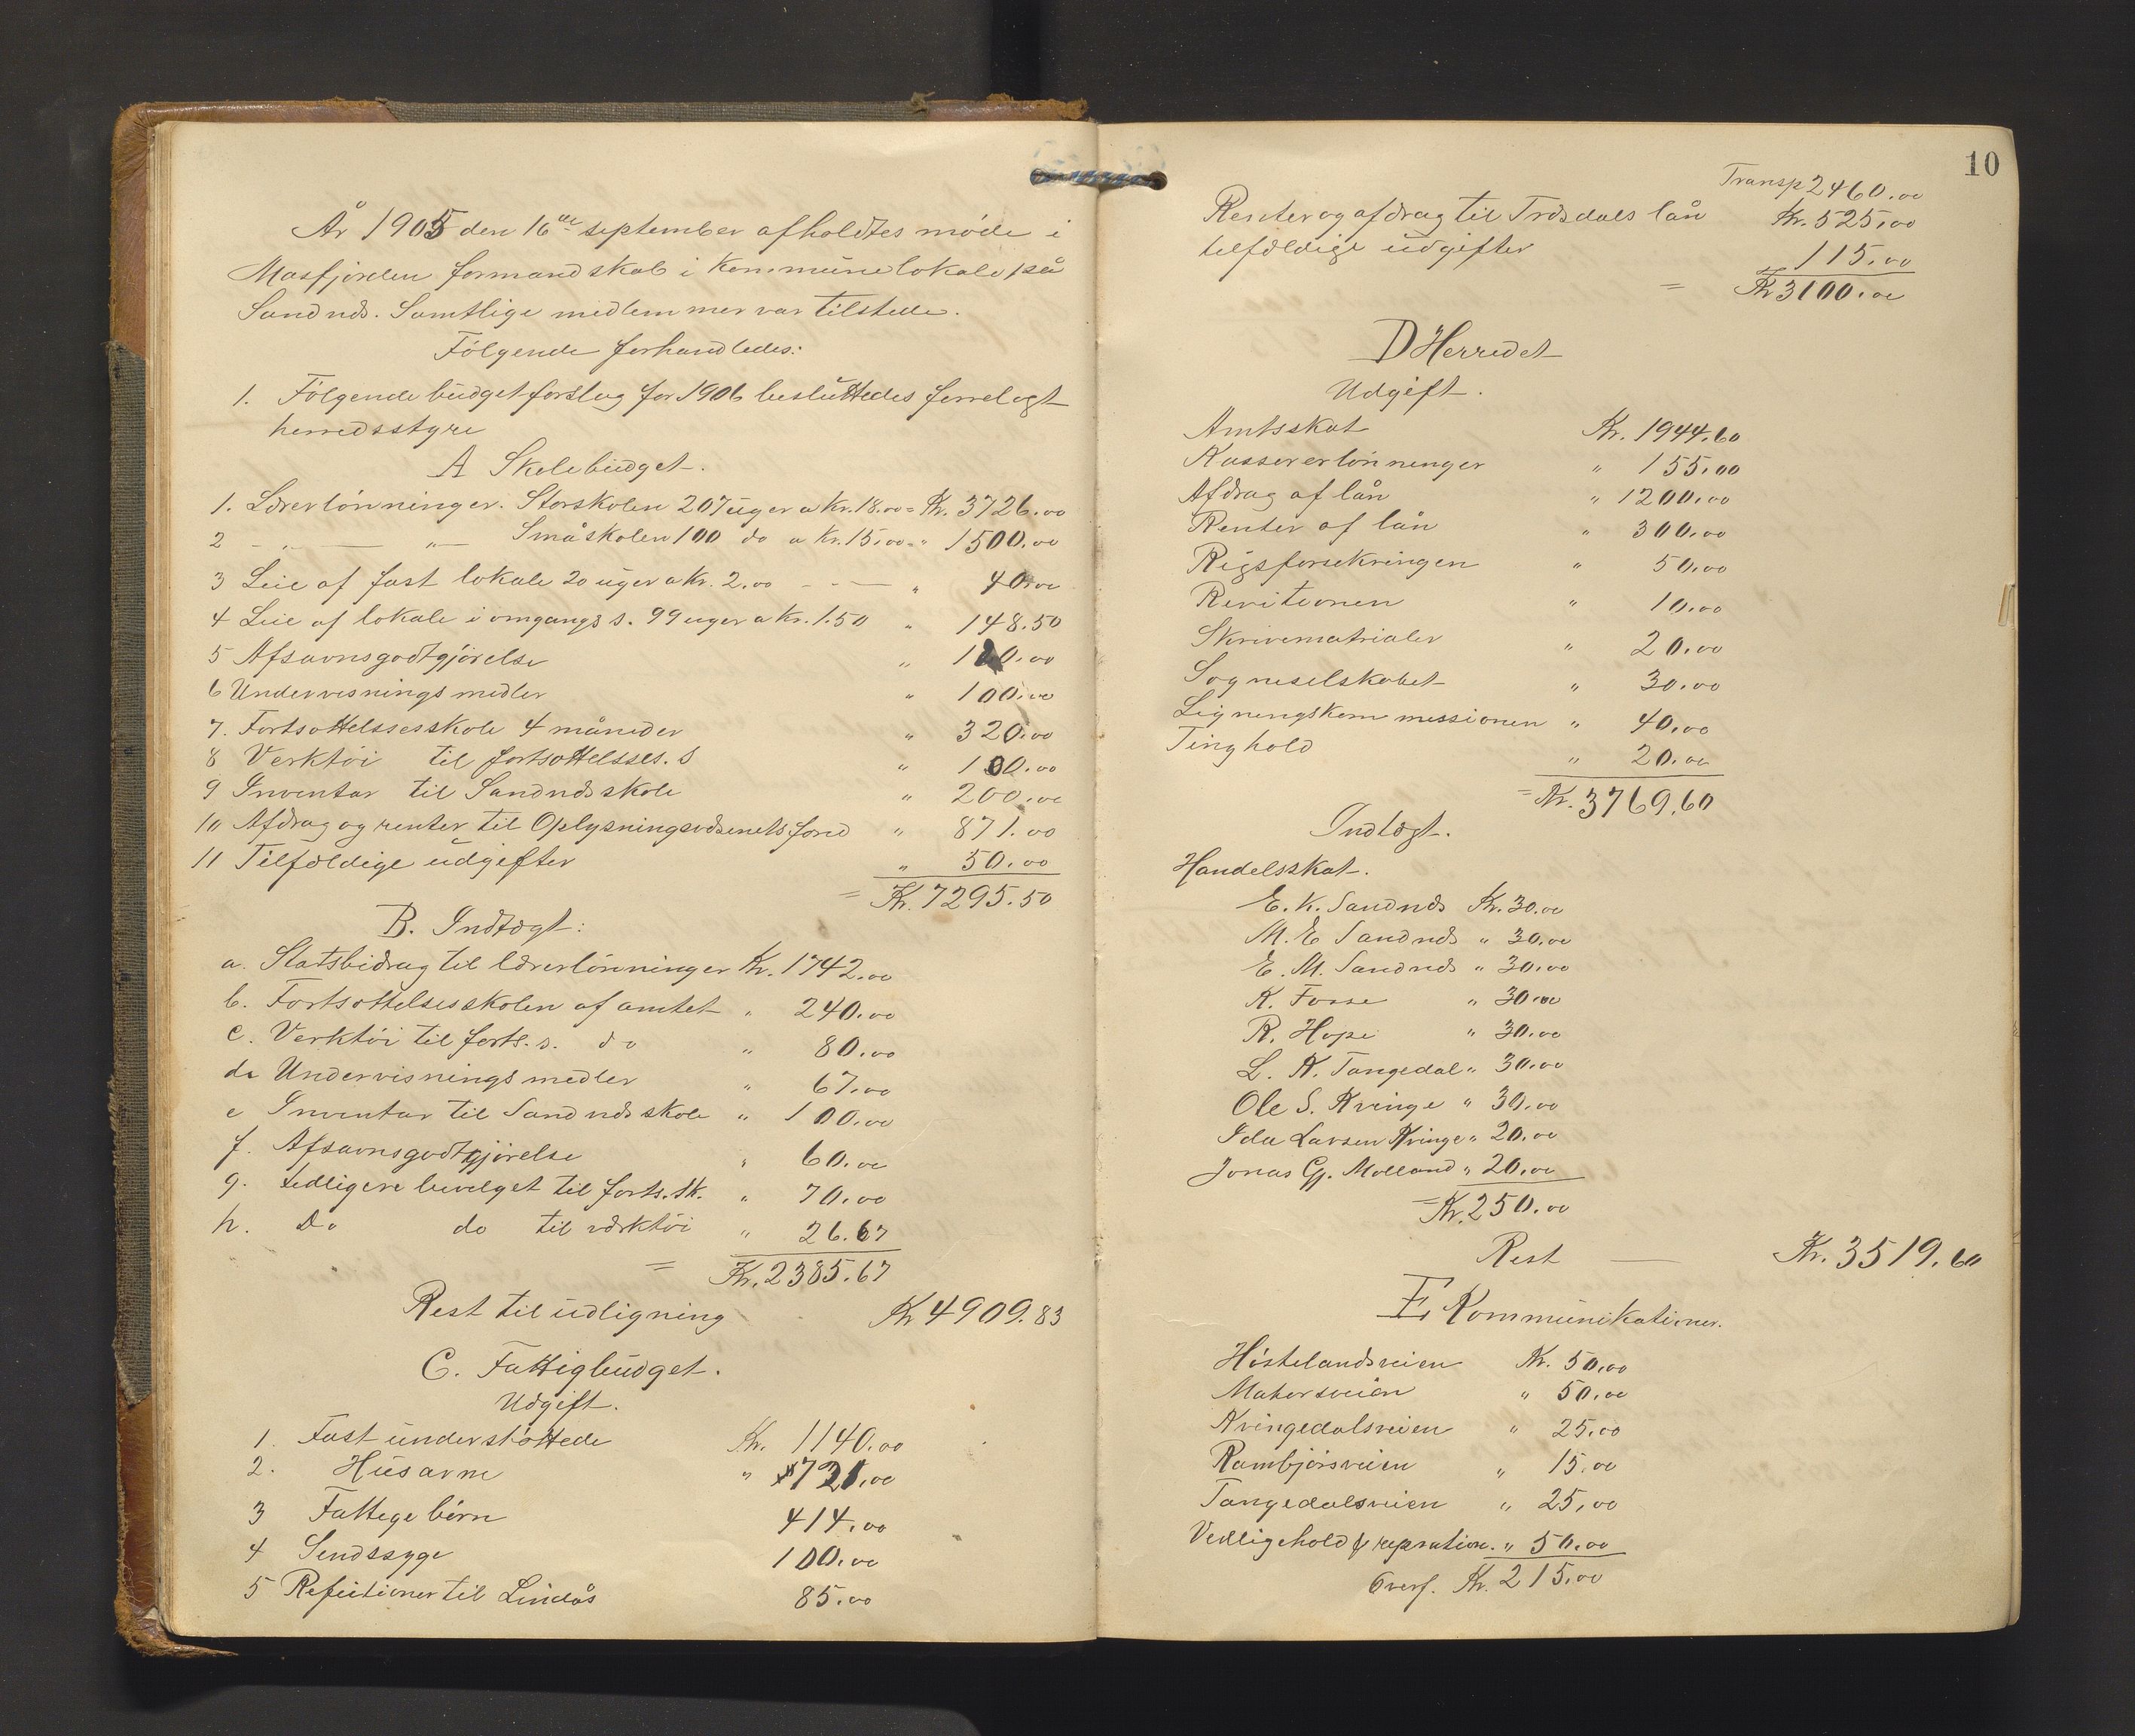 År 1905 den 16de september afholdtes møde i
Masfjorden formandskab i kommunelokale på
Sandnæs. Samtlige medlemmer var tilstede.
Følgende forhandledes:
1. Følgende budgetforslag for 1906 besluttedes forrelagt
herredsstyre
A Skolebudget.
1. Lærerlønninger. Storskolen 207 uger a Kr. 18.00 = Kr. 3726.00
2 - „ — „ — Småskolen 100 do a Kr. 15,00 - „ 1500.00
3 Leie af fast lokale 20 uger a Kr. 2.00 - - — „ 40.00
4 Leie af lokale i omgangs s. 99 uger a Kr. 1.50 „ 148.50
5 Afsavnsgodtgjørelse „ 120.00
6 Undervisnings midler „ 100.00
7. Fortsættelssesskole 4 måneder „ 320.00
8 Verktøi til fortsættelsses. s „ 100.00
9 Inventar til Sandnæs skole „ 200.00
10 Afdrag og renter til Oplysningsvæsenets fond „ 871.00
11 Tilfældige udgifter „ 50.00
= Kr. 7295.50
B. Indtægt:
a. Statsbidrag til lærerlønninger Kr. 1742.00
b. Fortsættelsesskolen af amtet „ 240.00
c. Verktøi til forts. s. do „ 80.00
d. Undervisnings medler „ 67.00
e Inventar til Sandnæs skole „ 100.00
f. Afsavnsgodtgjørelse „ 60.00
g. Yedligere bevelget til forts. sk. „ 70.00
h. Do do til værktøi „ 26.67
= Kr. 2385.67
Rest til udligning Kr 4909.83
C. Fattigbudget.
Udgift.
1. Fast understøttede Kr. 1140.00
2. Husarme „ 721.00
3 Fattege børn 414.00
4 Sendssyge 100.00
5 Refutioner til Lindås 85.00
10
Transp 2460.00
Renter og afdrag til Trædals lån Kr. 525.00
tilfældige udgifter 115.00
= Kr 3100.00
D Herredet
Udgift.
Amtsskat Kr. 1944.60
Kassererlønninger „ 155.00
Afdrag af lån „ 1200.00
Renter af lån „ 300.00
Rigsforsekringen „ 50.00
Revitionen „ 10.00
Skrivematrialer „ 20.00
Sogneselskabet „ 30.00
Ligningskommissionen „ 40.00
Tinghold „ 20.00
= Kr. 3769.60
Indtægt.
Handelsskat.
E. K. Sandnæs Kr. 30.00
M. E Sandnæs „ 30.00
E. M. Sandnæs „ 30.00
K. Fosse „ 30.00
R. Hope „ 30.00
L. K. Tangedal „ 30.00
Ole S. Kvinge „ 30.00
Ida Larsen Kvinge „ 20.00
Jonas Gj. Molland „ 20.00
= Kr. 250.00
Rest — Kr. 3519.60
E Kommunikationer.
Høstelandsveien Kr. 50.00
Matersveien „ 50.00
Kvingedalsveien „ 25.00
Rambjørsveien „ 15.00
Tangedalsveien „ 25.00
Vedligehold & repration. „ 50.00
Overf. Kr. 215.00